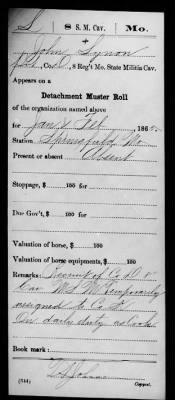 S | 8 S. M. Cav. | Mo.
John
Co. D, 8 Reg't Mo. State Militia Cav.
Appears on a
Detachment Muster Roll
of the organization named above
for Jan & Feb, 186
Station Springfield, Mo
Present or absent Absent
Stoppage, $ 100 for
Due Gov't, $ 100 for
Valuation of horse, $ 100
Valuation of horse equipments, $ 100
Remarks: Recruit of Co. D 8
Cav M S M temporarily
assigned to Co.
On daily duty as Cook
Book mark:
(344) Copyist.